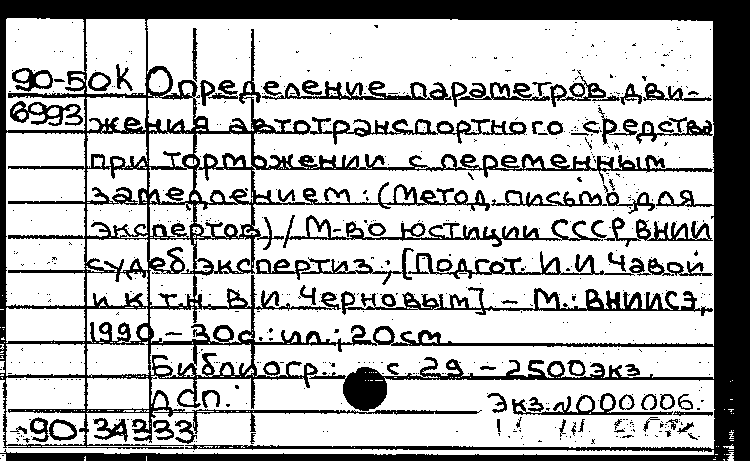 90-50К Определение параметров дви-
6993 жения автотранспортного средства
при торможении с переменным
замедлением: (Метод. письмо для
экспертов) / М-во юстиции СССР, ВНИИ
судеб. экспертиз; [Подгот. И.И. Чавой
и к.т.н. В.И. Черновым] – М.: ВНИИСЭ,
1990. – 30с.: ил.; 20см.
Библиогр.: с. 29. – 2500экз.
ДСП.
Экз.№000006.
~90-34333